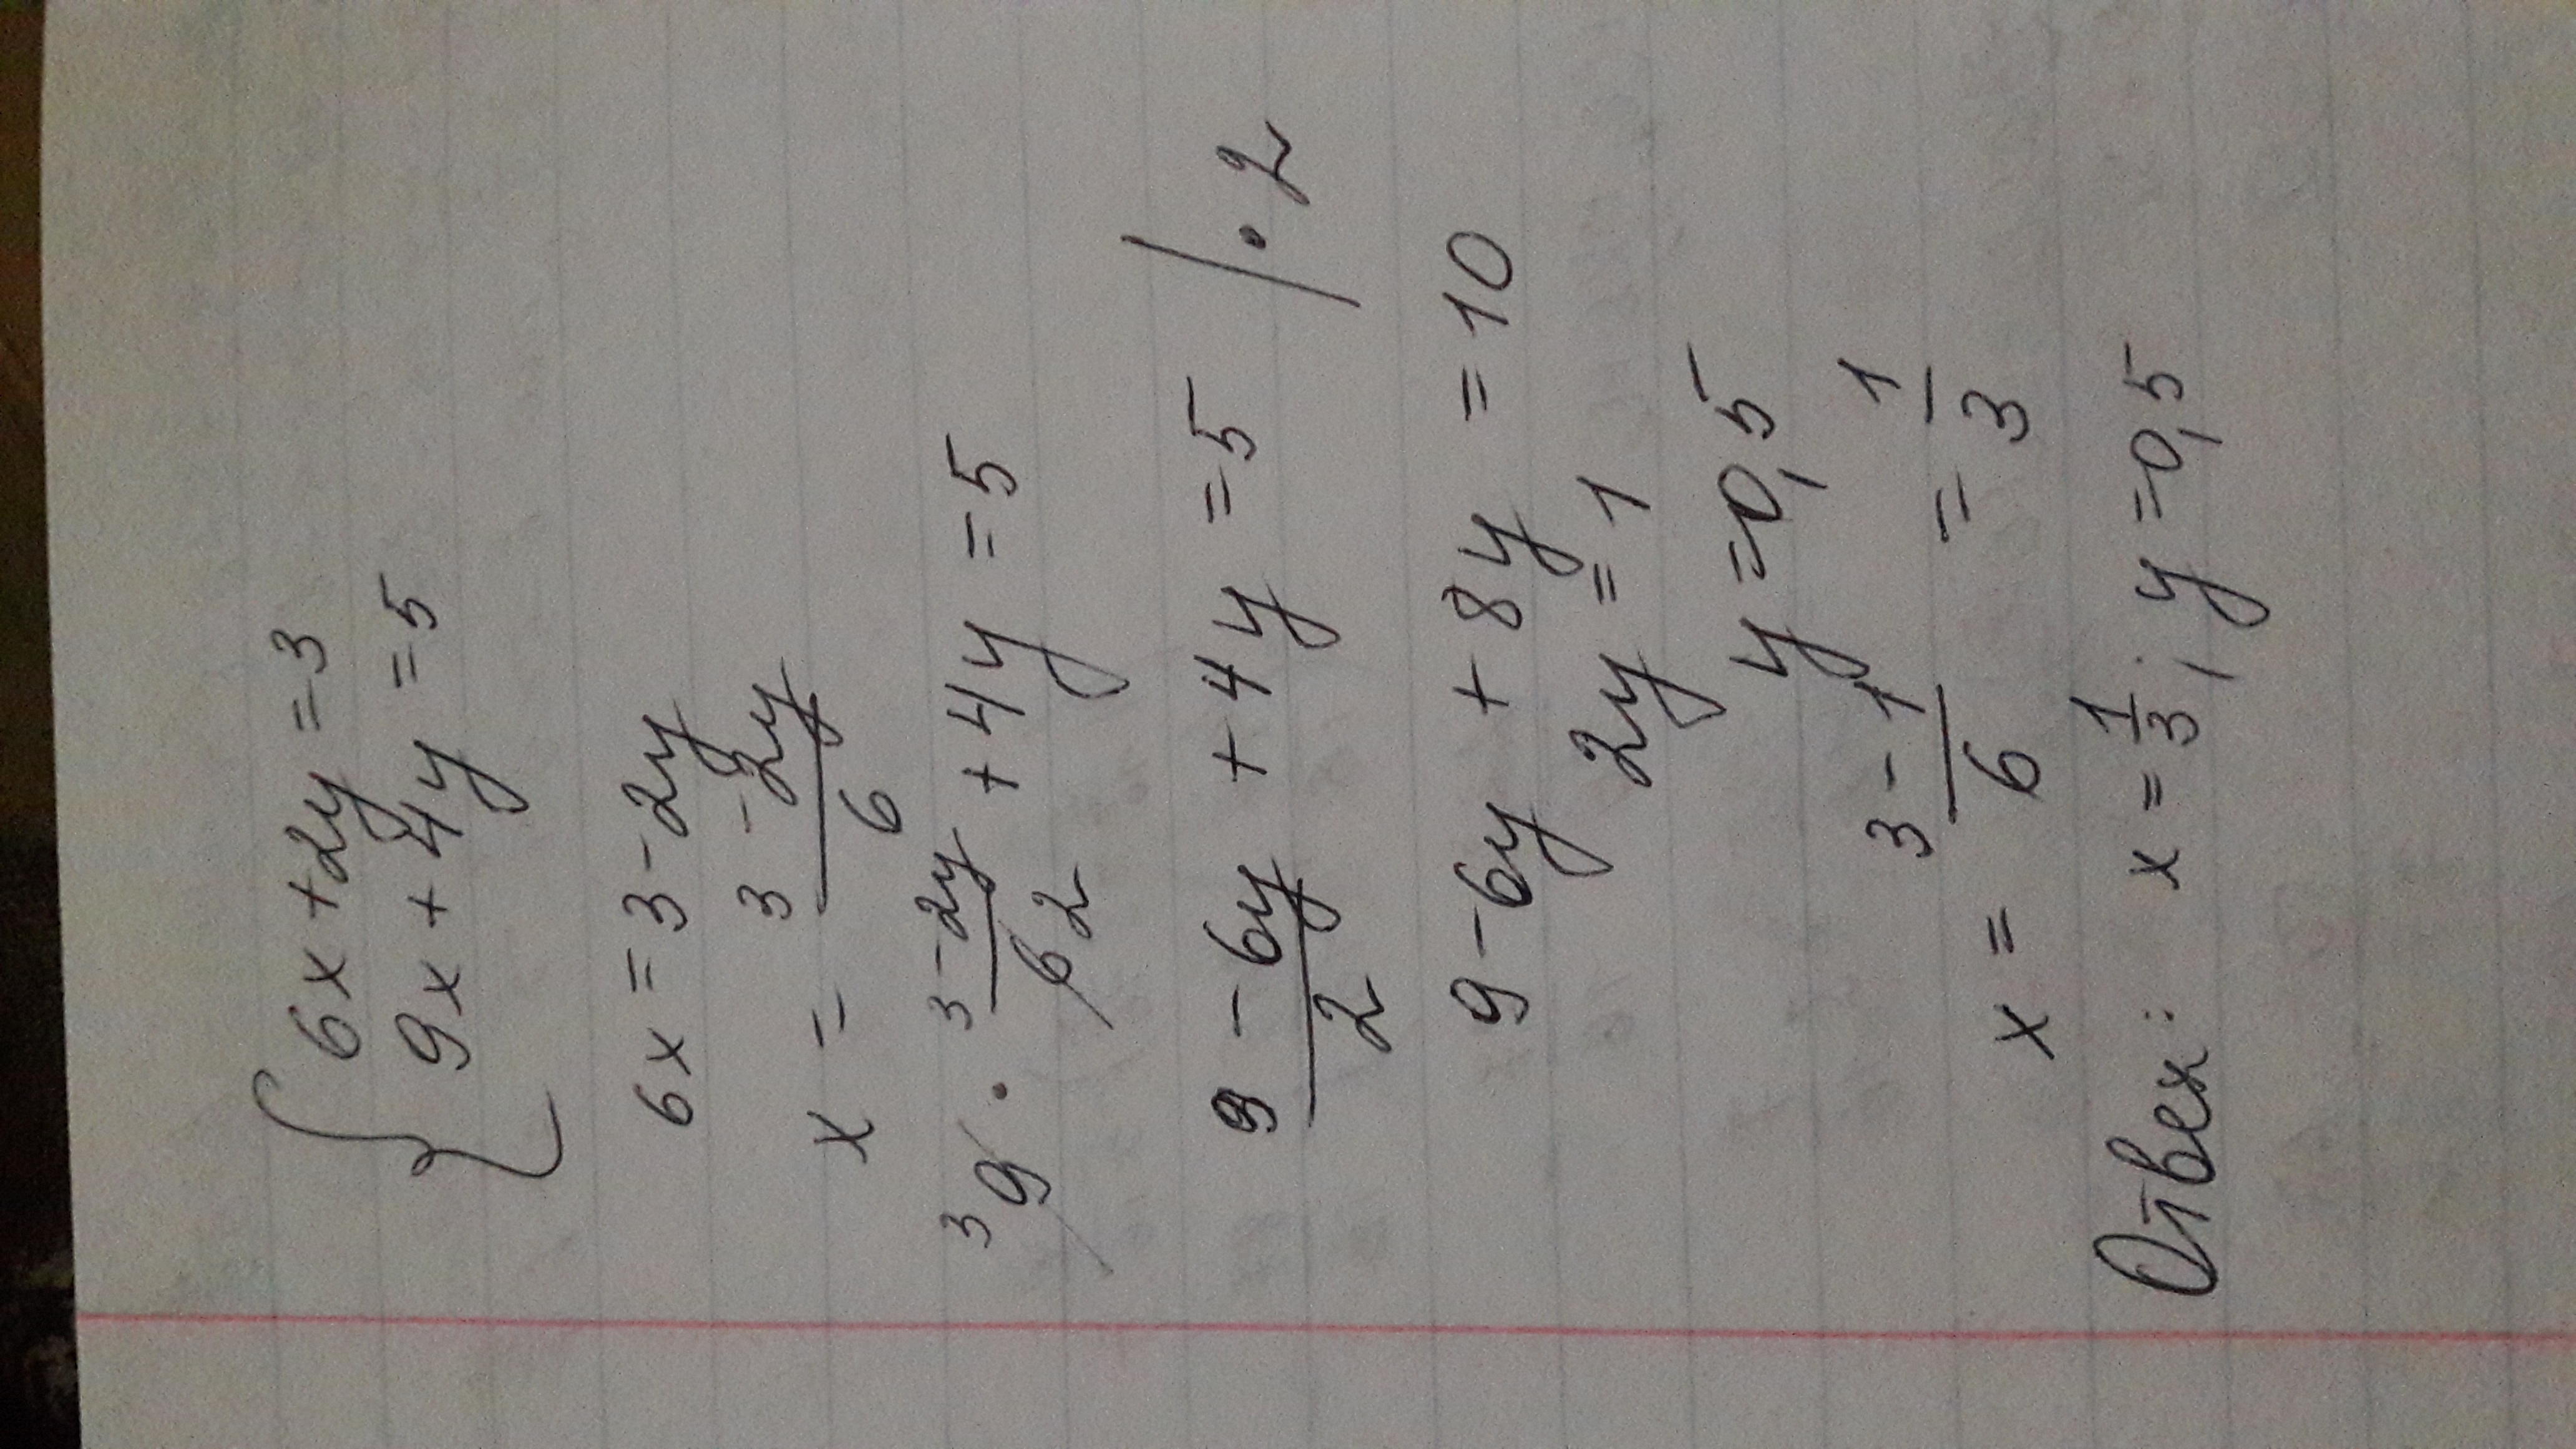 { 6x + 2y = 3
9x + 4y = 5
6x = 3 - 2y
x = (3 - 2y)/6
³9 · (3 - 2y)/6 2 + 4y = 5
(9 - 6y)/2 + 4y = 5 | · 2
9 - 6y + 8y = 10
2y = 1
y = 0,5
x = (3 - 1)/6 = 1/3
Ответ: x = 1/3; y = 0,5